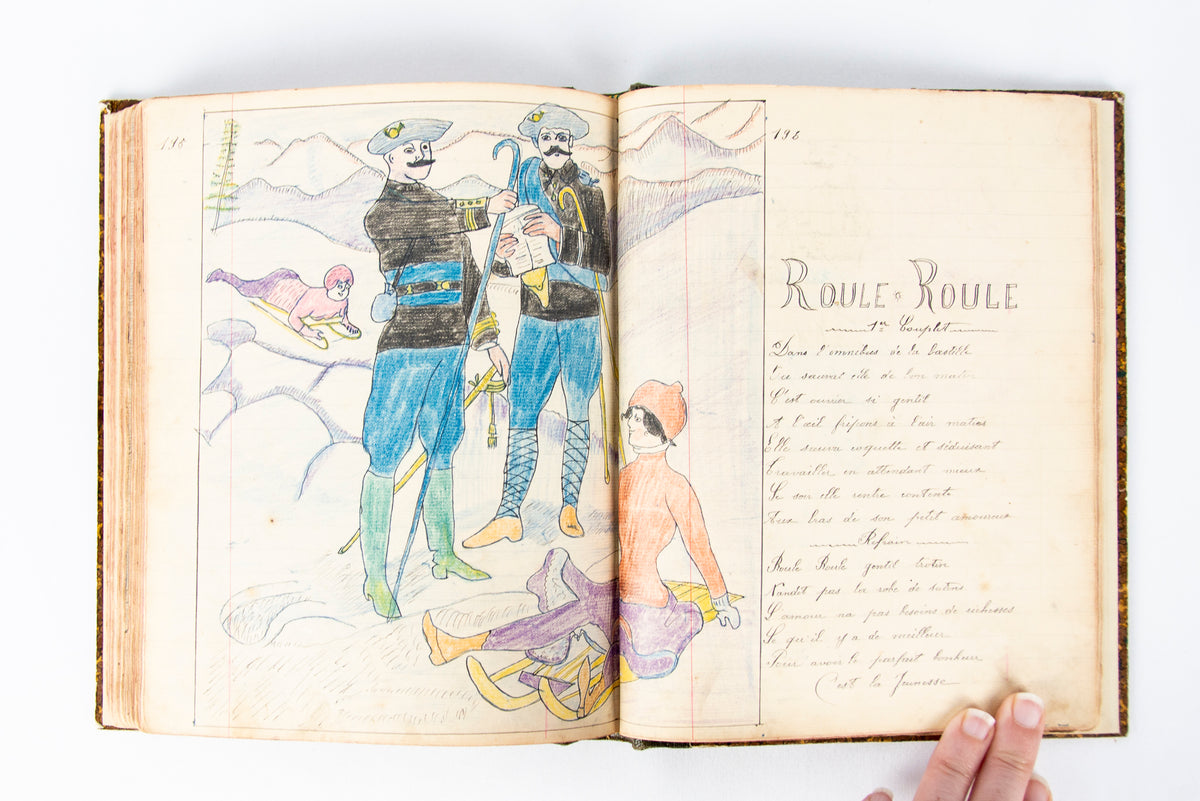 198
198
ROULE ROULE
1er Couplet
Dans l'omnibus de la bastille
sauvat elle de bon matin
C'est ouvrier si gentil
A l'œil fripons à l'air matins
Elle sauva coquette et séduissant
Travailler en attendant mieux
Le soir elle rentre contente
Aux bras de son petit amoureux
Refrain
Roule Roule gentil trotin
Vandit pas ta robe de satins
L'amour na pas besoins de richesses
Se qu'il y a de meilleur
Pour avoir le parfait bonheur
C'est la Jeunesse